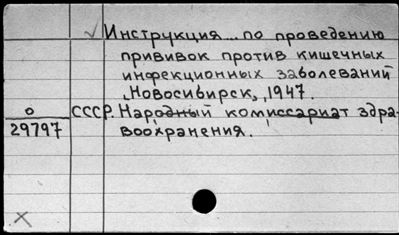 Инструкция... по проведению
прививок против кишечных
инфекционных заболеваний
Новосибирск, 1947.
О СССР. Народный комиссариат здра-
29797 воохранения.